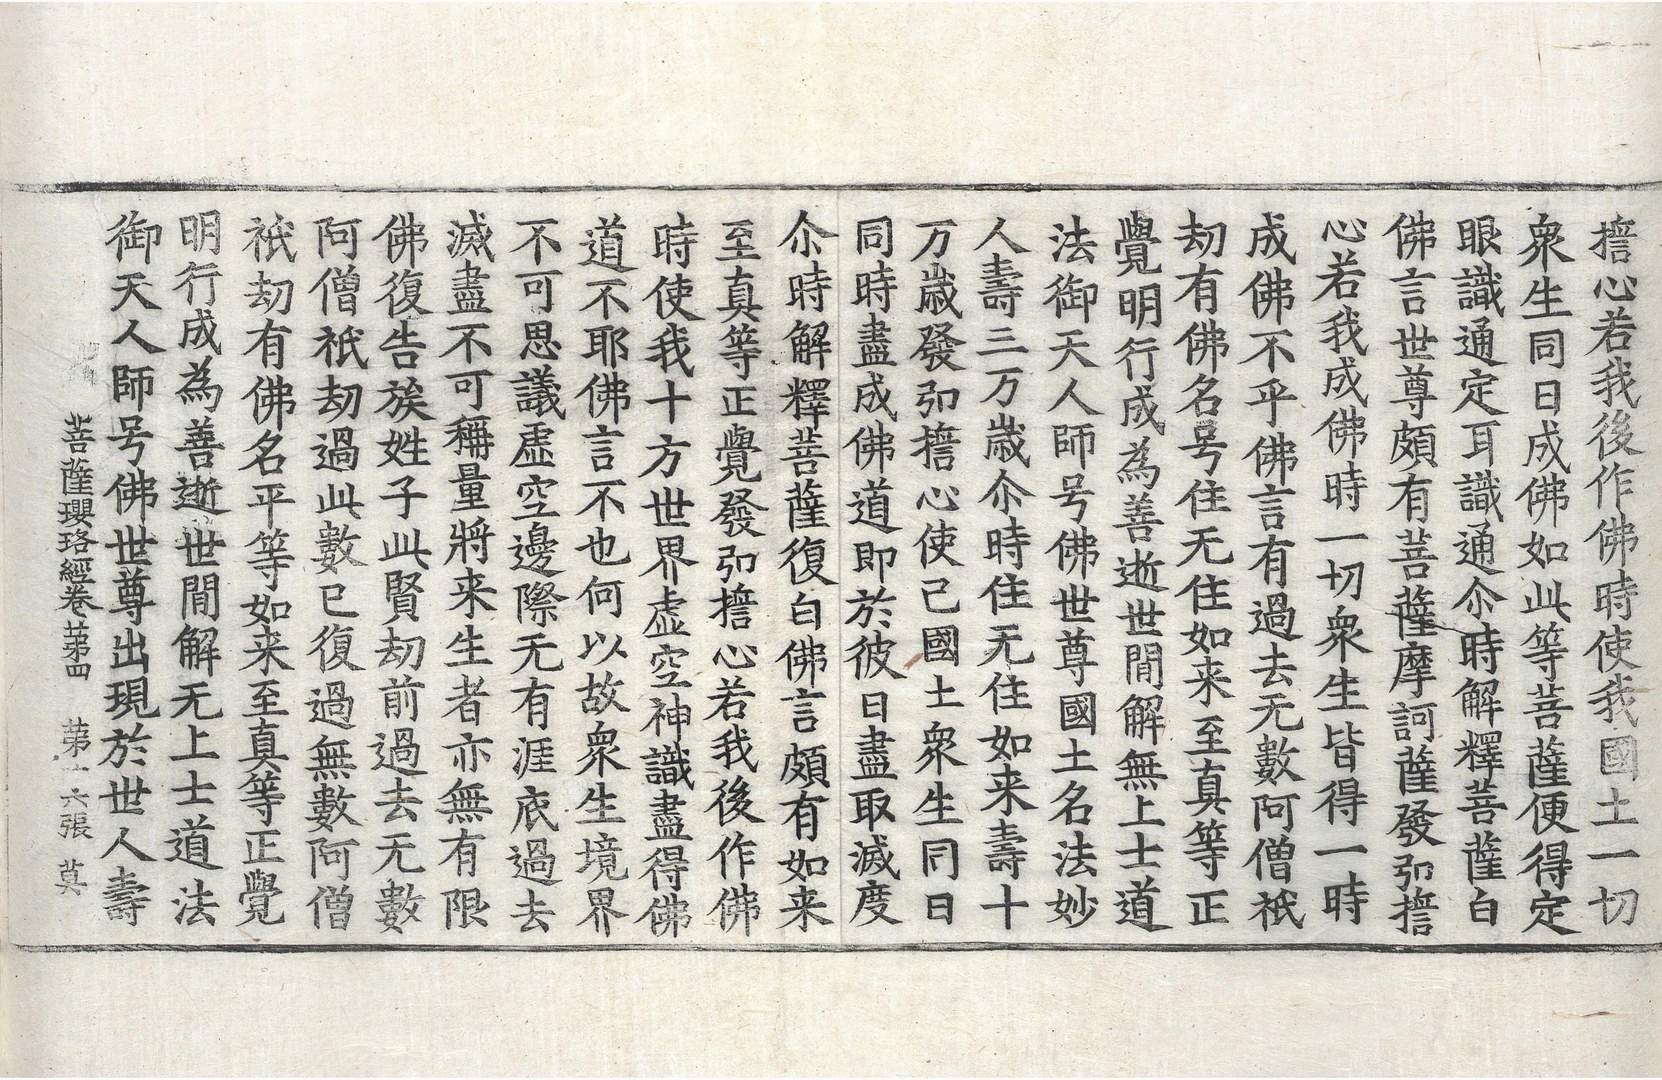 擔心若我後作佛時使我國土一切
衆生同日成佛如此等菩薩便得定
眼識通定耳識通尒時解釋菩薩白
佛言世尊頗有菩薩摩訶薩發弘擔
心若我成佛時一切衆生皆得一時
成佛不乎佛言有過去无數阿僧祇
劫有佛名号住无住如来至真等正
覺明行成為善逝世間解無上士道
法御天人師号佛世尊國土名法妙
人壽三万歲尒時住无住如来壽十
万歲發弘擔心使己國土衆生同日
同時盡成佛道即於彼日盡取滅度
尒時解釋菩薩復白佛言頗有如来
至真等正覺發弘擔心若我後作佛
時使我十方世界虛空神識盡得佛
道不耶佛言不也何以故衆生境界
不可思議虛空邊際无有涯底過去
滅盡不可稱量將来生者亦無有限
佛復告族姓子此賢劫前過去无數
阿僧祇劫過此數已復過無數阿僧
祇劫有佛名平等如来至真等正覺
明行成為善逝世間解无上士道法
御天人師号佛世尊出現於世人壽
菩薩瓔珞經卷第四 第十六張 莫